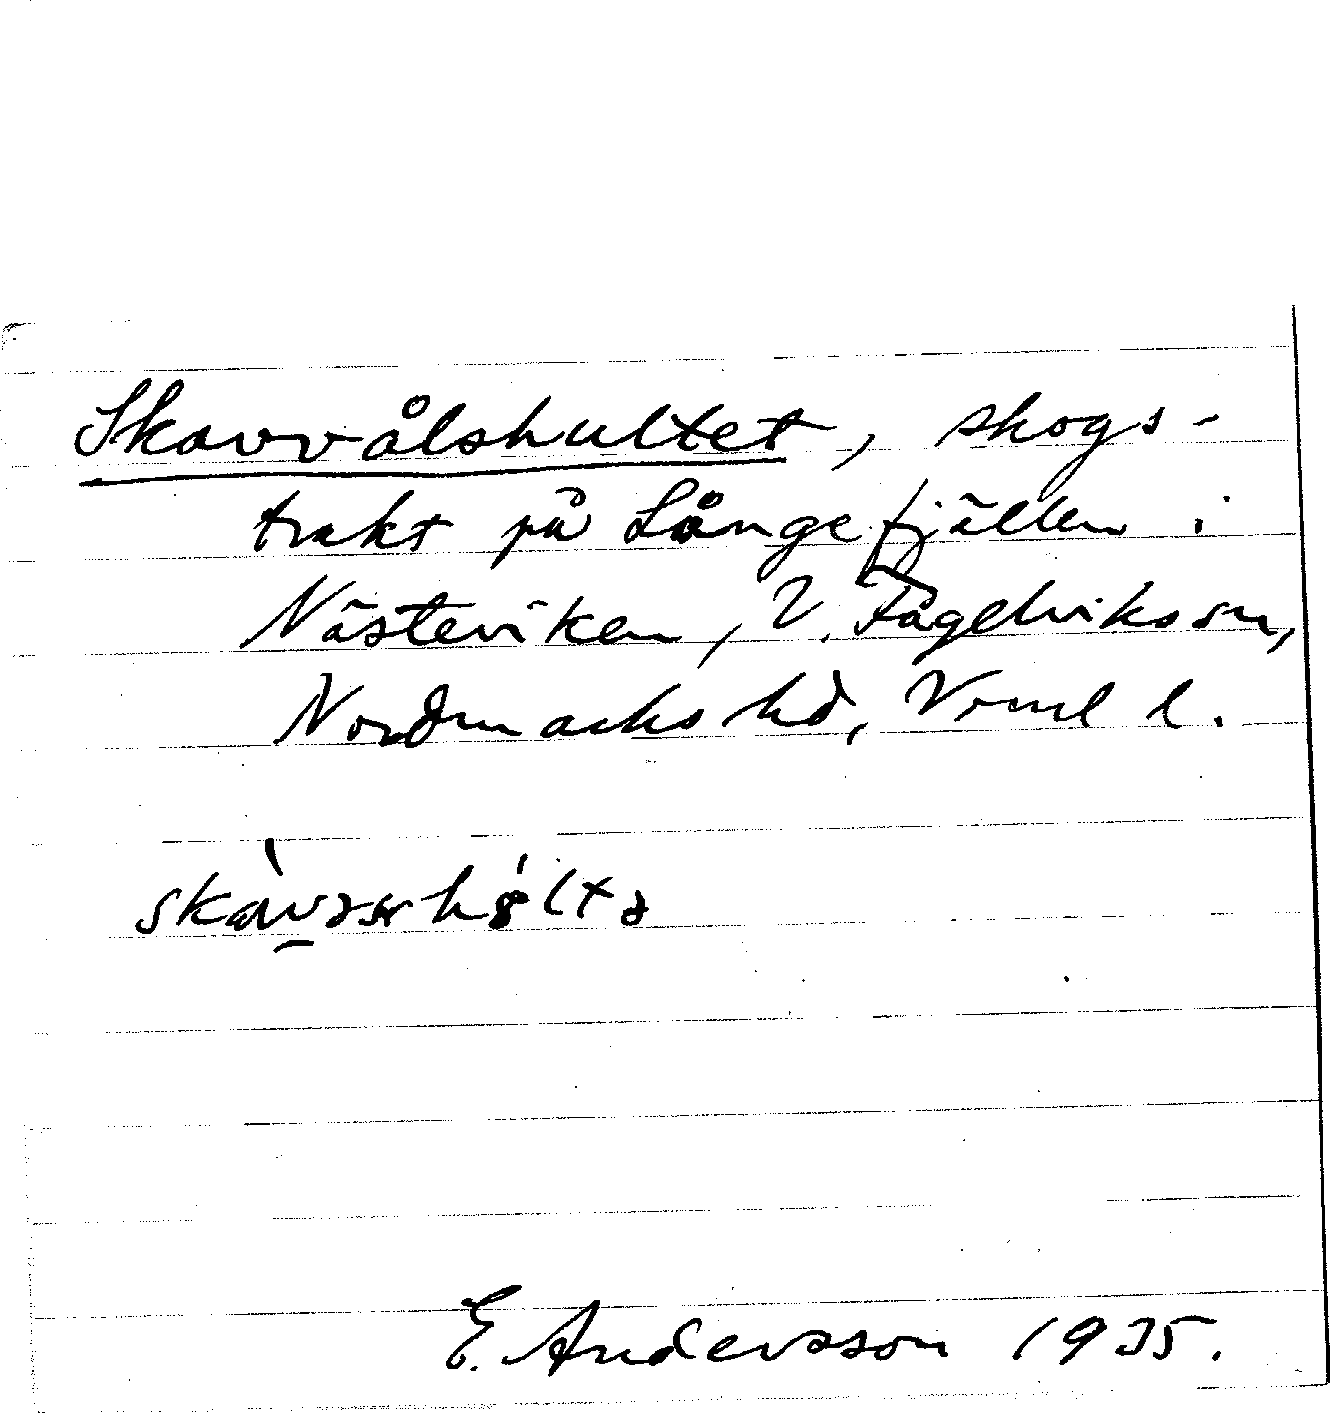 Skavvålshultet, skogs-
trakt på Långefjällen i
Nästeviken, V. Fågelviks sn,
Nordmarks hd, Vrml l.
E. Andersson 1935.